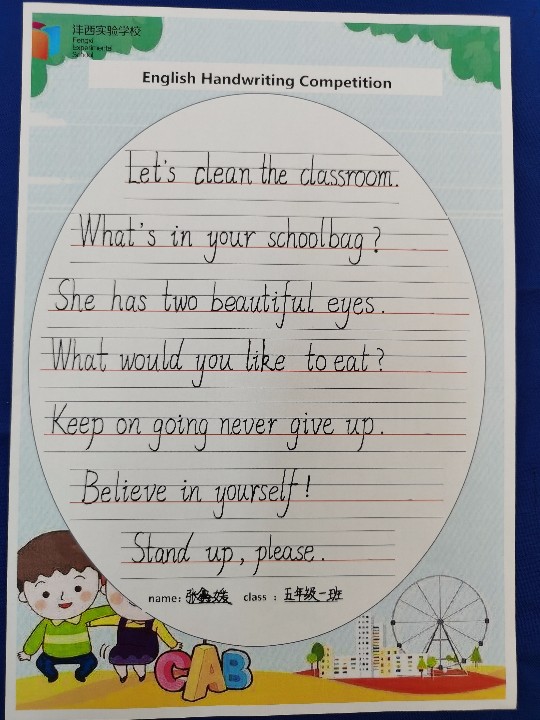 沣西实验学校
Fengxi
Experimental
School
English Handwriting Competition
Let's clean the classroom.
What's in your schoolbag?
She has two beautiful eyes.
What would you like to eat?
Keep on going never give up.
Believe in yourself!
Stand up, please.
name: 张 class : 五年级一班
CAB